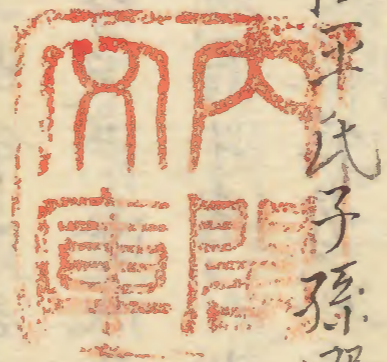 平氏子孫
内閣
文庫